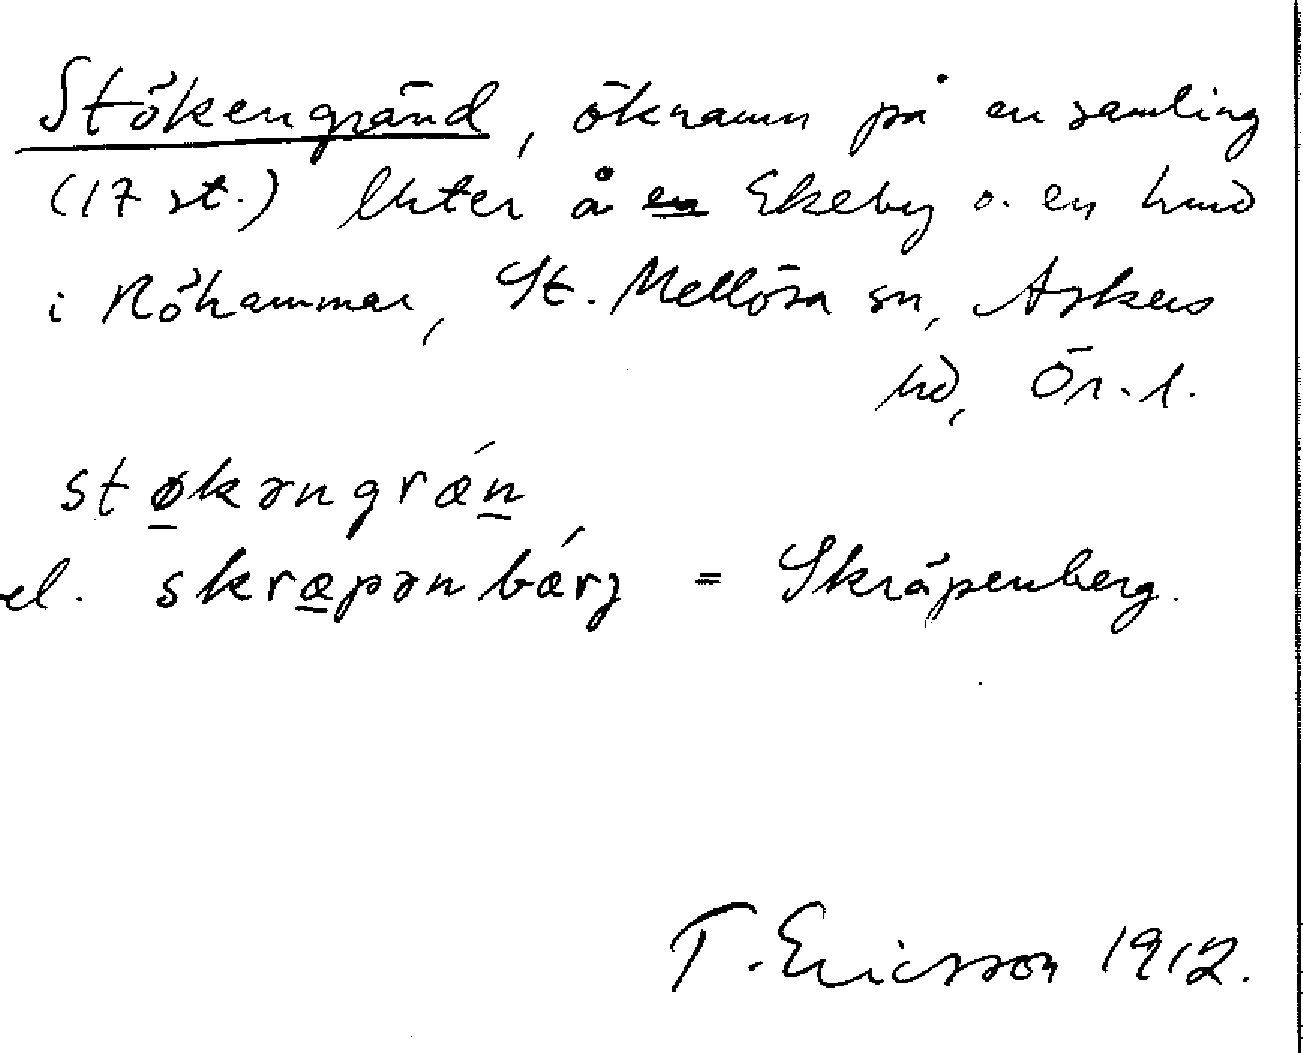 Stökengränd, öknamn på en samling
(17 st.) lluter å en Ekeby o. en hund
i Röhammar, St. Mellösa sn, Askers
hd, Ör. l.
støkəngrǽn
el. skræpənbǽrj = Skräpenberg.
T. Ericsson 1912.